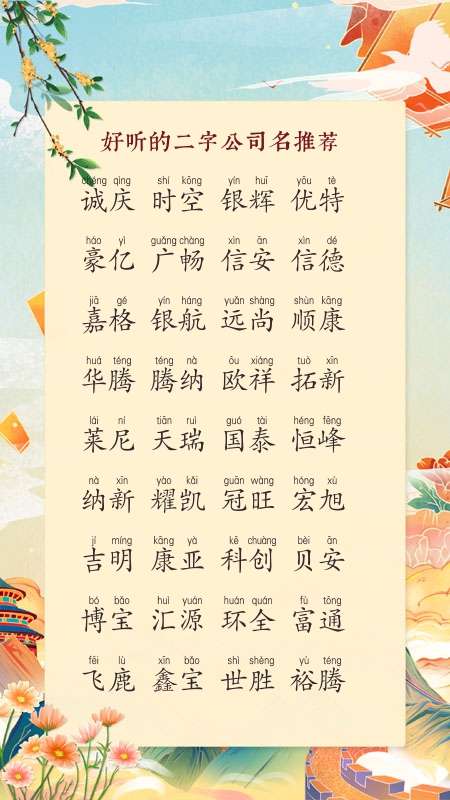 好听的二字公司名推荐
chéng qìng shí kōng yín huī yōu tè
诚庆 时空 银辉 优特
háo yì guǎng chàng xìn ān xìn dé
豪亿 广畅 信安 信德
jiā gé yín háng yuǎn shàng shùn kāng
嘉格 银航 远尚 顺康
huá téng téng nà ōu xiáng tuò xīn
华腾 腾纳 欧祥 拓新
lái ní tiān ruì guó tài héng fēng
莱尼 天瑞 国泰 恒峰
nà xīn yào kǎi guān wàng hóng xù
纳新 耀凯 冠旺 宏旭
jí míng kāng yà kē chuàng bèi ān
吉明 康亚 科创 贝安
bó bǎo huì yuán huán quán fù tōng
博宝 汇源 环全 富通
fēi lù xīn bǎo shì shèng yù téng
飞鹿 鑫宝 世胜 裕腾